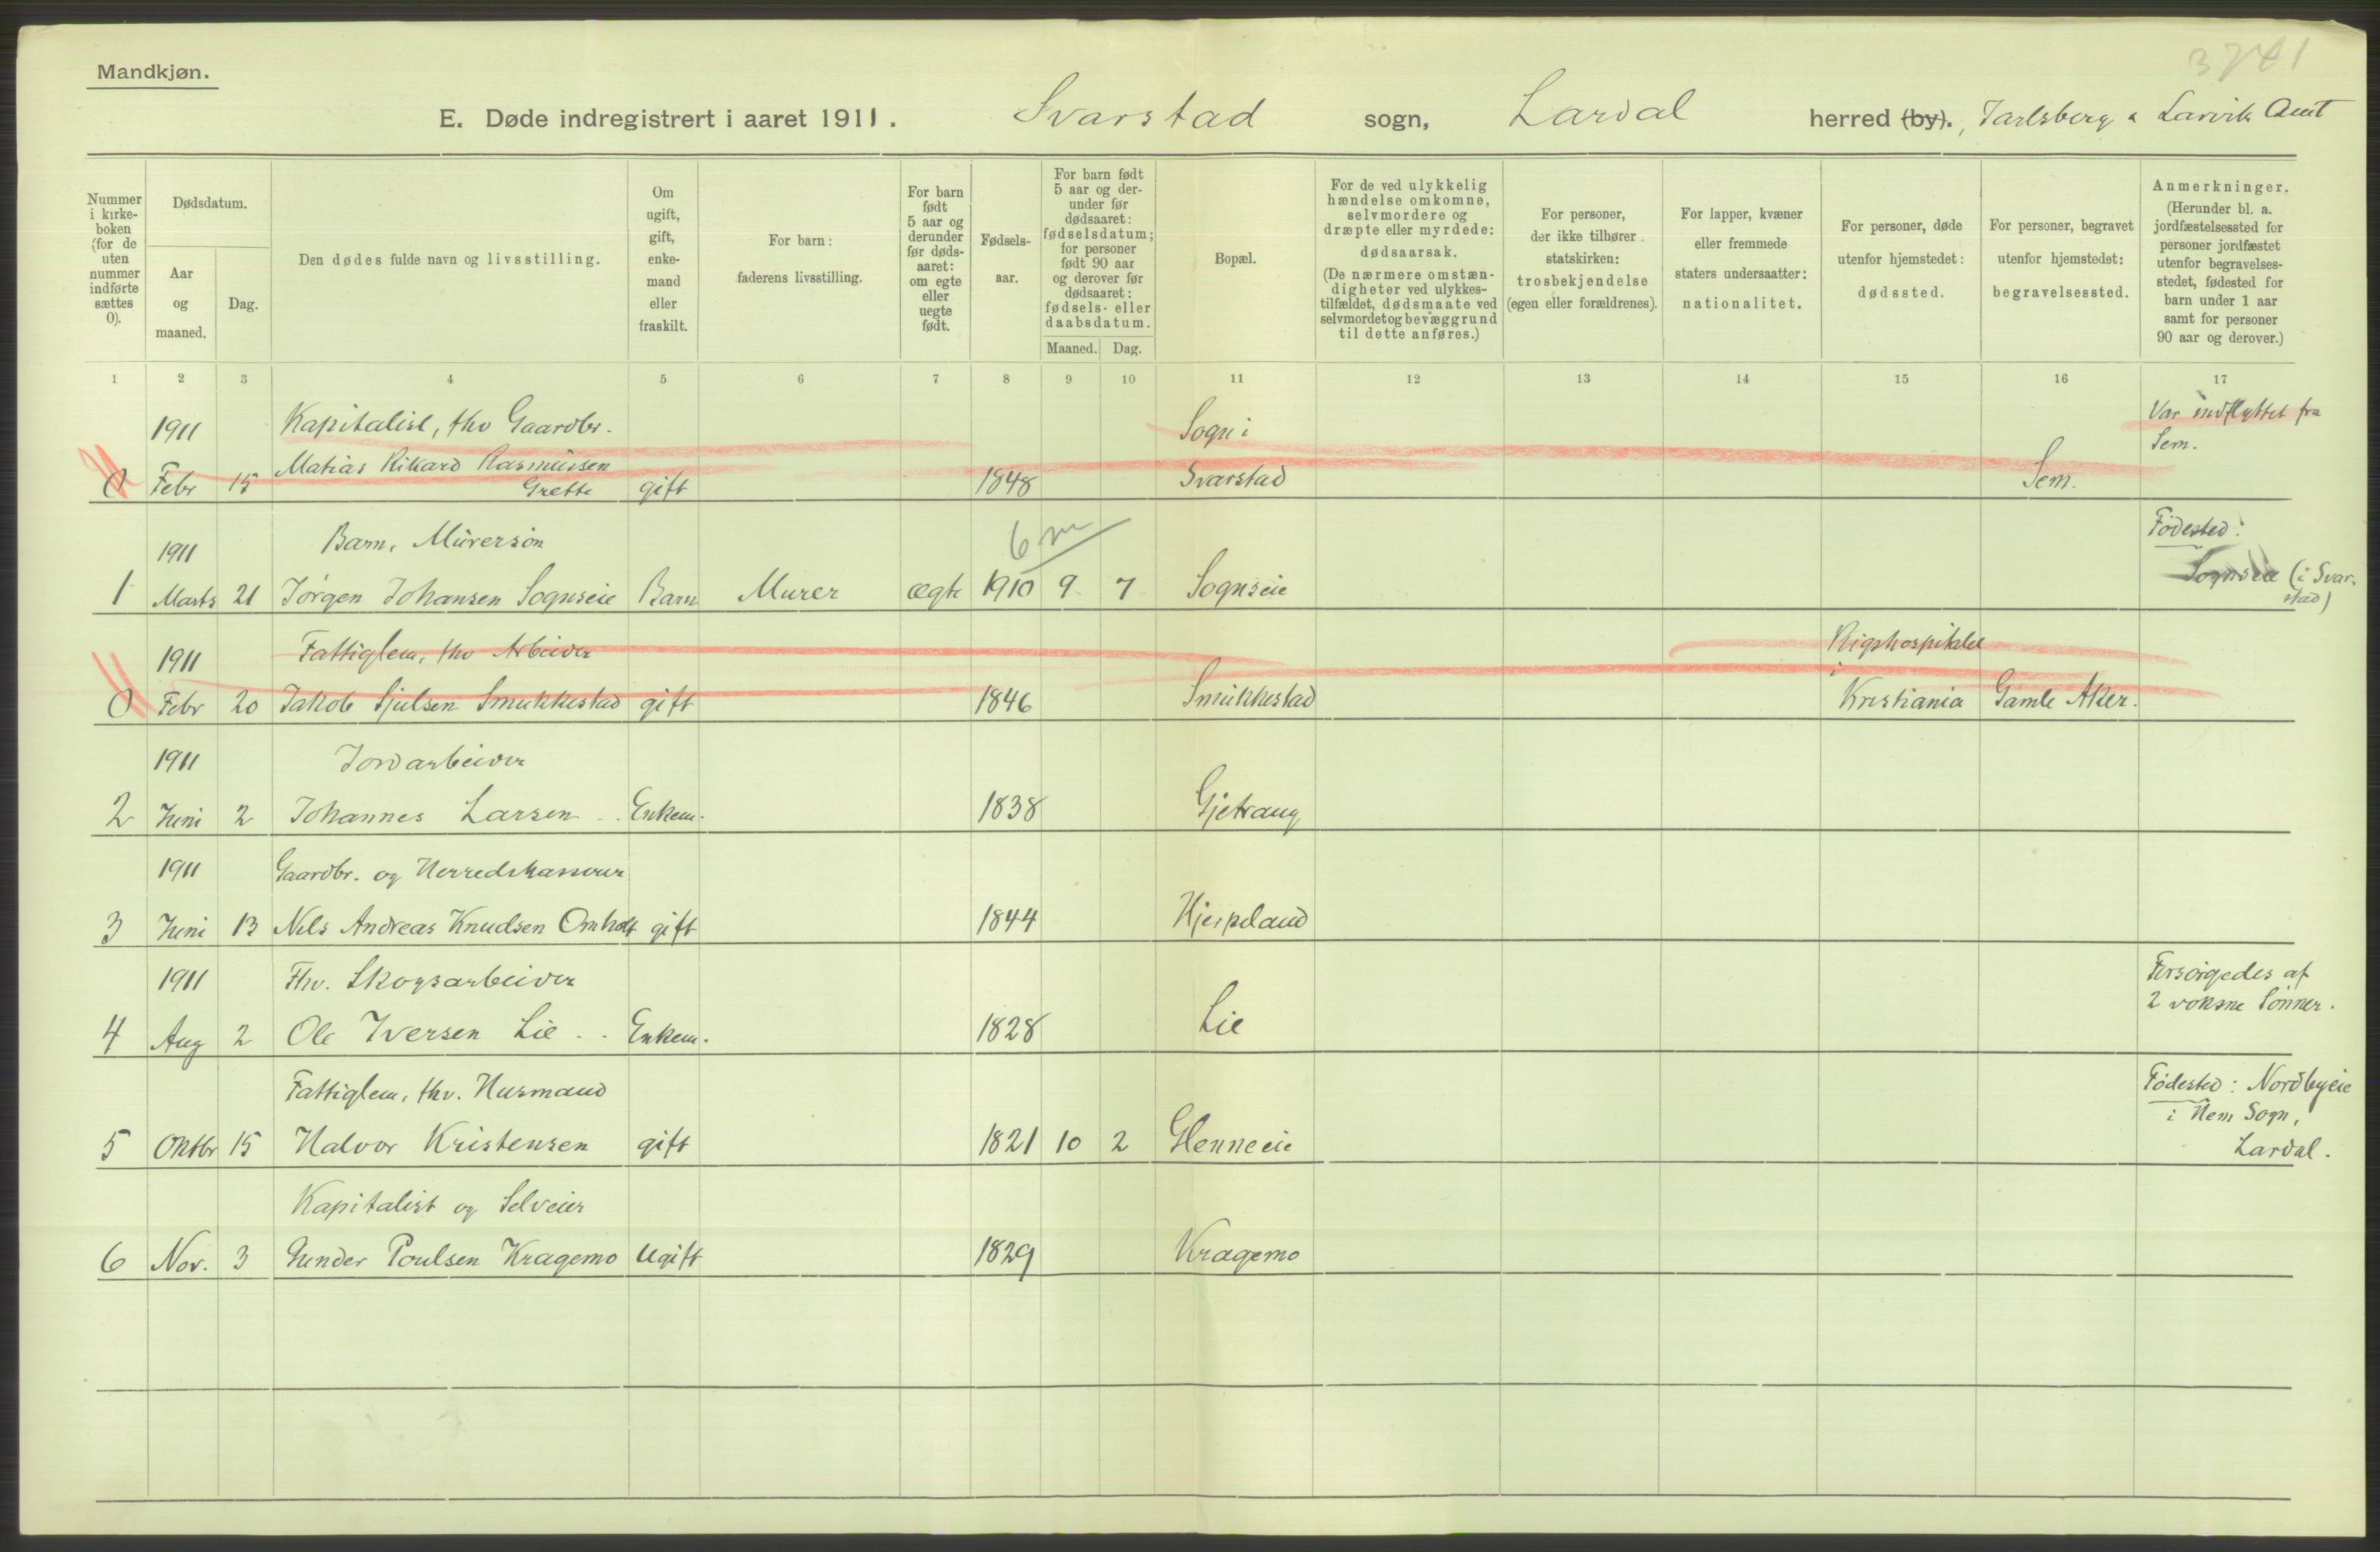 3741
Mandkjøn.
E. Døde indregistrert i aaret 1911. Svarstad sogn, Lardal herred (by)., Jarlsberg & Larvik Amt
Nummer i kirke-boken (for de uten nummer indførte sættes 0).
Dødsdatum.
Aar og maaned.
Dag.
Den dødes fulde navn og livsstilling.
Om ugift, gift, enke-mand eller fraskilt.
For barn: faderens livsstilling.
For barn født 5 aar og derunder før døds-aaret: om egte eller uegte født.
Fødsels-aar.
For barn født 5 aar og der-under før dødsaaret: fødselsdatum; for personer født 90 aar og derover før dødsaaret: fødsels- eller daabsdatum.
Maaned. Dag.
Bopæl.
For de ved ulykkelig hændelse omkomne, selvmordere og dræpte eller myrdede: dødsaarsak. (De nærmere omstæn-digheter ved ulykkes-tilfældet, dødsmaate ved selvmord og bevæggrund til dette anføres.)
For personer, der ikke tilhører statskirken: trosbekjendelse (egen eller forældrenes).
For lapper, kvæner eller fremmede staters undersaatter: nationalitet.
For personer, døde utenfor hjemstedet: dødssted.
For personer, begravet utenfor hjemstedet: begravelsessted.
Anmerkninger. (Herunder bl. a. jordfæstelsessted for personer jordfæstet utenfor begravelses-stedet, fødested for barn under 1 aar samt for personer 90 aar og derover.)
1 2 3 4 5 6 7 8 9 10 11 12 13 14 15 16 17
1911 Kapitalist, fhv Gaardbr. Sogn i Var indflyttet fra
Matias Rikard Rasmussen Sem.
0 Febr 15 Grette gift 1848 Svarstad Sem.
1911 Barn, Murersøn 6 m Fødested:
1 Marts 21 Jørgen Johansen Sognseie Barn Murer ægte 1910 9 7 Sognseie Sognseie (i Svar-
stad)
1911 Fattiglem, fhv Arbeider Rigshospitalet
i
0 Febr 20 Jakob Sjulsen Smukkestad gift 1846 Smukkestad Kristiania Gamle Aker.
1911 Jordarbeider
2 Juni 2 Johannes Larsen Enkem. 1838 Gjetrang
1911 Gaardbr. og Herredskasserer
3 Juni 13 Nils Andreas Knudsen Omholt gift 1844 Hjerpeland
1911 Fhv. Skogsarbeider Forsørgedes af
2 voksne Sønner.
4 Aug 2 Ole Iversen Lie Enkem. 1828 Lie
Fattiglem, fhv. Husmand Fødested: Nordbyeie
i Hem Sogn,
5 Oktbr 15 Halvor Kristensen gift 1821 10 2 Glenneeie Lardal.
Kapitalist og Selveier
6 Nov. 3 Gunder Poulsen Kragemo Ugift 1829 Kragemo